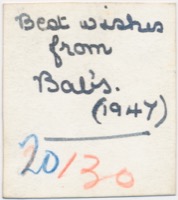 Best wishes
from
Bab's.
(1947)
20/30